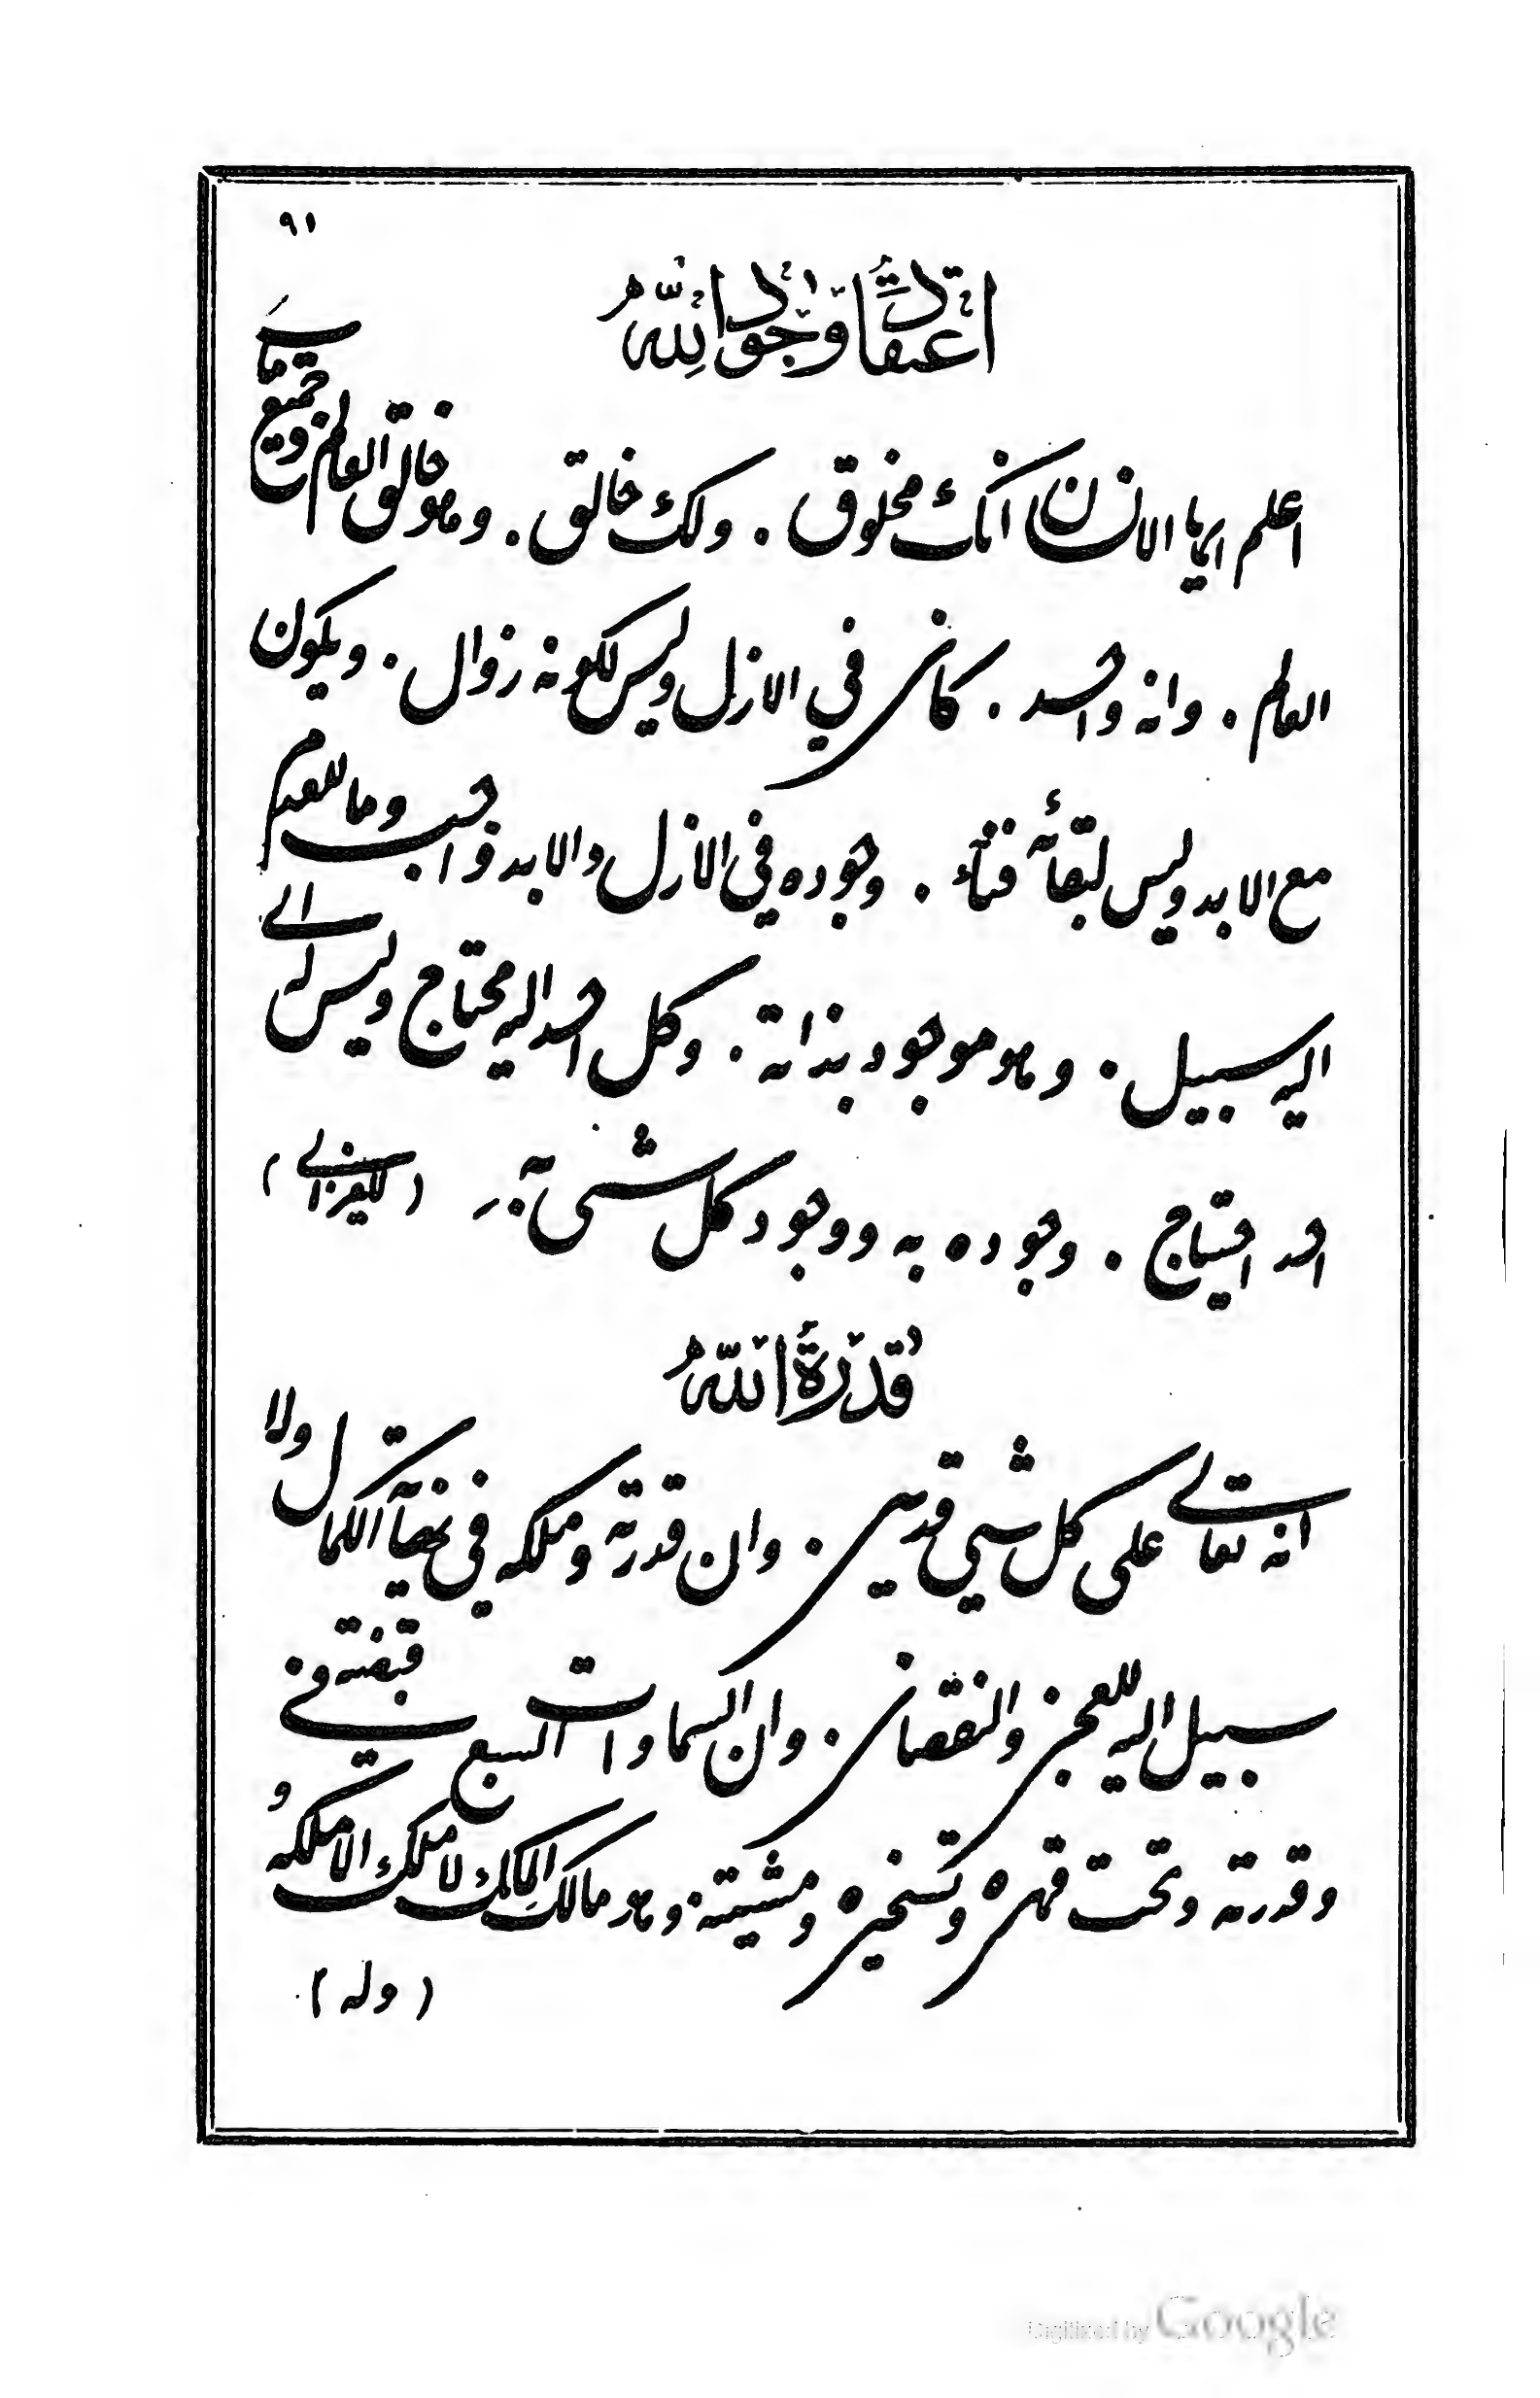 ٩١
اعتقاد وجود الله
اعلم ايها الانسان انك مخلوق . ولك خالق . وهو خالق العالم وجميع ما في
العالم . وانه واحد . كان في الازل وليس لكونه زوال . ويكون
مع الابد وليس لبقائه فناء . وجوده في الازل والابد واجب وما للعدم
اليه سبيل . وهو موجود بذاته . وكل احد اليه محتاج وليس له الى
احد احتياج . وجوده به ووجود كل شيء به (للغزالي)
قُدْرَةُ اللهُ
انه تعالى على كل شيء قدير . وان قدرته وملكه في نهاية الكمال ولا
سبيل اليه للعجز والنقصان . وان السماوات السبع في قبضته
وقدرته وتحت قهره وتسخيره ومشيته وهو مالك الملك لا ملك الا ملكه
(وله)
Digitized by Google